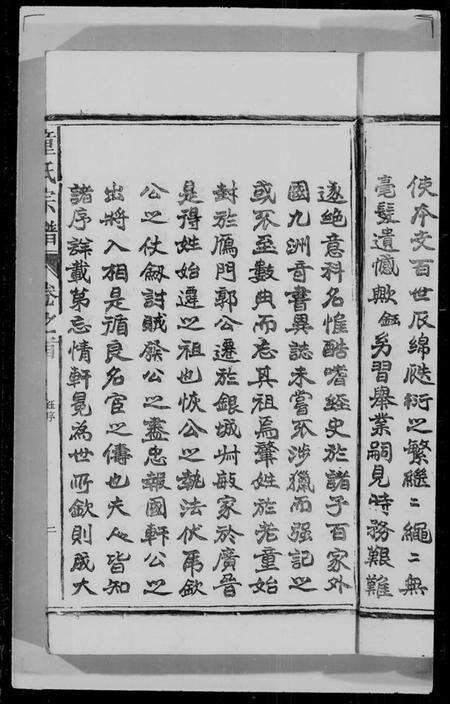 使本支百世瓜綿瓞衍之繁繼繼繩繩無
毫髮遺憾歟鈺務習舉業嗣見時務艱難
遂絕意科名惟酷嗜經史於諸子百家外
國九洲音書異誌未嘗不涉獵而强記之
或不至數典而忘其祖焉肇姓於老童始
封於鴈門郭公遷於銀城艸敏家於廣音
是得姓始遷之祖也恢公之執法伏帝欽
公之仗劔討賊發公之盡忠報國軒公之
出將入相是循良名宦之傳也夫人皆知
諸序詳載第忘情軒冕為世所欽則成大
童氏宗譜 卷之首 鈺序 二